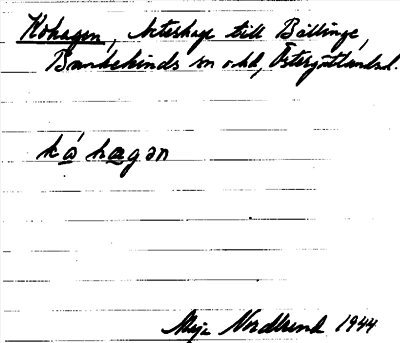 Kohagen, beteshage till Bällinge,
Bankekinds sn o hd, Östergötlands l.
kó hagən
Maja Nordstrand 1944